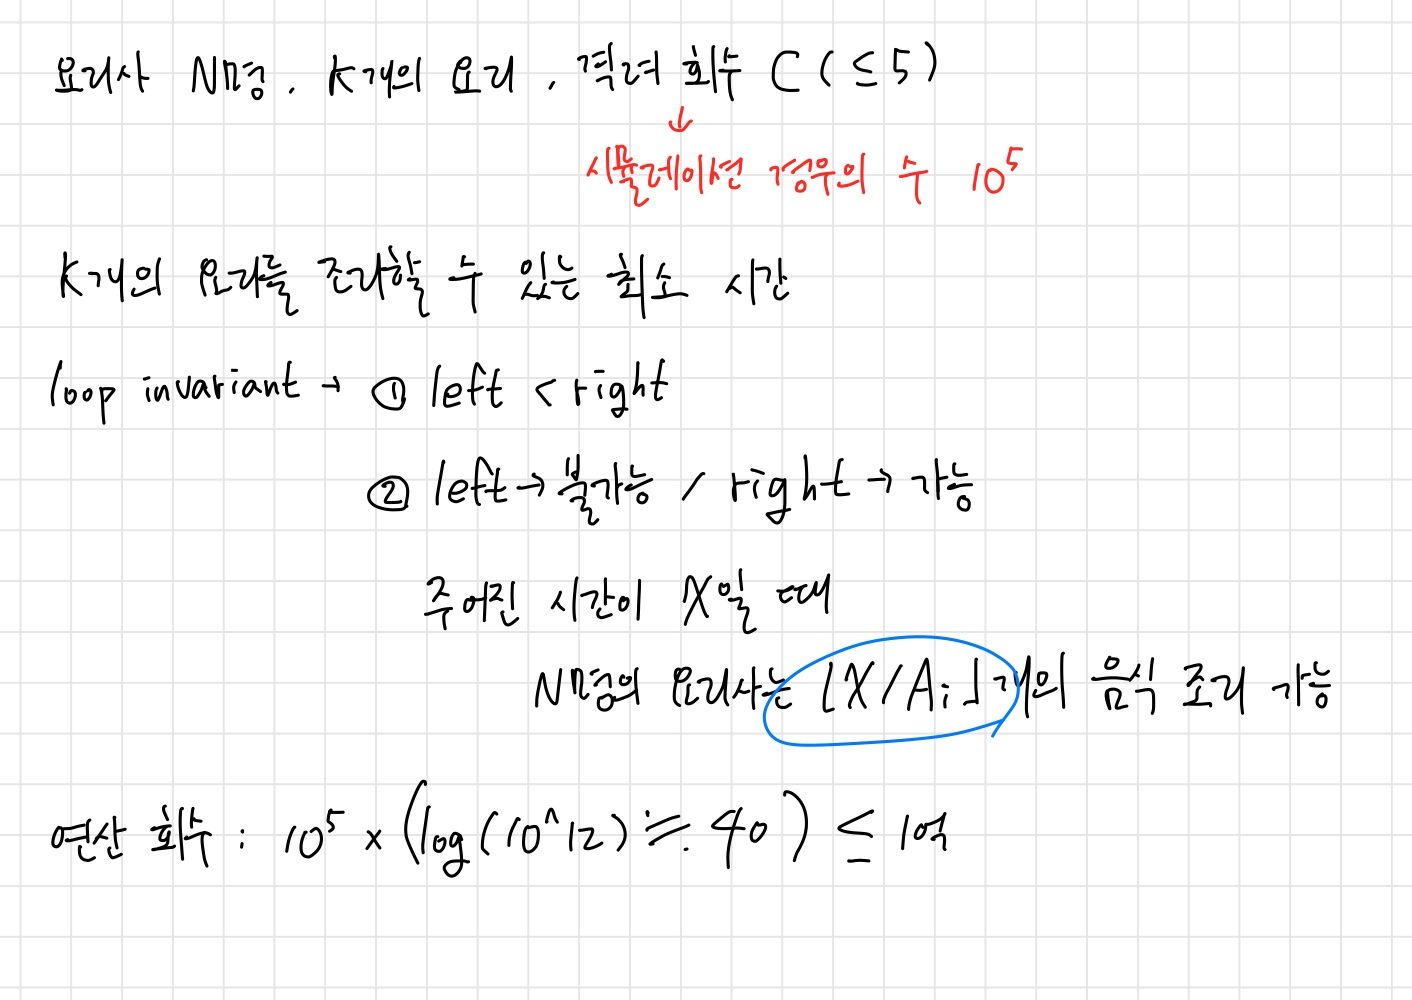 요리사 N명. K개의 요리. 격려 회수 C (≤5)
↓
시뮬레이션 경우의 수 10^5
K개의 요리를 조리할 수 있는 최소 시간
loop invariant → ① left < right
② left → 불가능 / right → 가능
주어진 시간이 X일 때
N명의 요리사는 ⌊X/Ai⌋개의 음식 조리 가능
연산 회수 : 10^5 × (log(10^12) ≒ 40) ≤ 1억